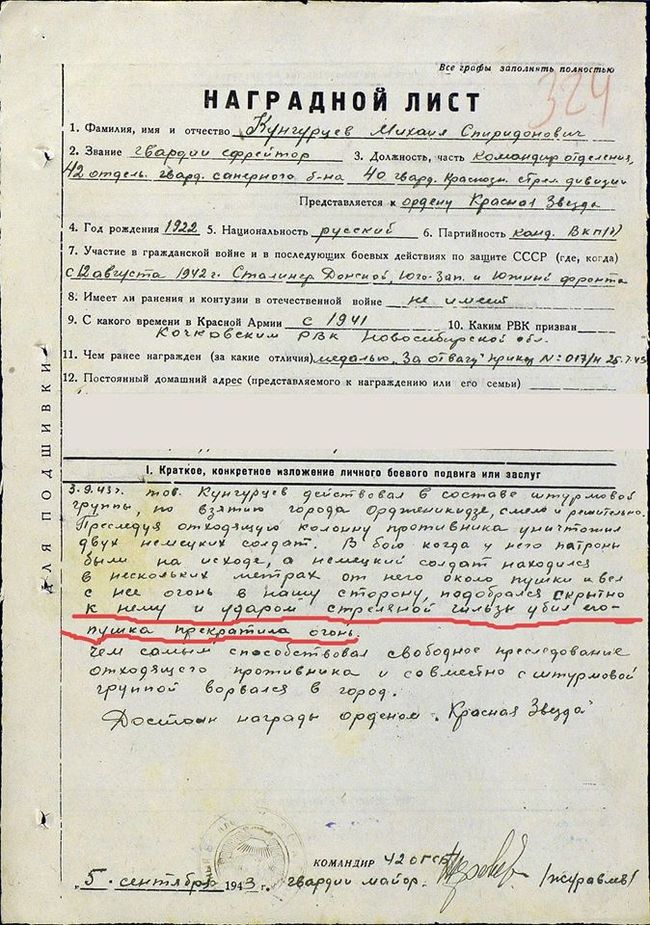 Все графы заполнять полностью
324
НАГРАДНОЙ ЛИСТ
1. Фамилия, имя и отчество Кунгурцев Михаил Спиридонович
2. Звание гвардии ефрейтор 3. Должность, часть командир отделения,
42 отдельн. гвард. саперного б-на 40 гвард. Краснозн. стрел. дивизии
Представляется к ордену Красная Звезда
4. Год рождения 1922 5. Национальность русский 6. Партийность канд. ВКП(б)
7. Участие в гражданской войне и в последующих боевых действиях по защите СССР (где, когда)
с 12 августа 1942 г. Сталингр. Донской, Юго-Зап. и Южный фронта
8. Имеет ли ранения и контузии в отечественной войне не имеет
9. С какого времени в Красной Армии с 1941 10. Каким РВК призван
Кочковским РВК Новосибирской обл.
11. Чем ранее награжден (за какие отличия) медалью „За отвагу" приказ № 017/н 25.7.43
12. Постоянный домашний адрес (представляемого к награждению или его семьи)
ДЛЯ ПОДШИВКИ
I. Краткое, конкретное изложение личного боевого подвига или заслуг
3.9.43г. тов. Кунгурцев действовал в составе штурмовой
группы, по взятию города Орджоникидзе, смело и решительно.
Преследуя отходящую колонну противника уничтожил
двух немецких солдат. В бою когда у него патроны
были на исходе, а немецкий солдат находился
в нескольких метрах от него около пушки и вел
с нее огонь в нашу сторону, подобрался скрытно
к нему и ударом стреляной гильзы убил его-
пушка прекратила огонь.
Чем самым способствовал свободное преследование
отходящего противника и совместно с штурмовой
группой ворвался в город.
Достоин награды орденом „Красная Звезда"
КОМАНДИР 42 ОГСБ
„5" сентября 1943 г. гвардии майор /Журавлев/